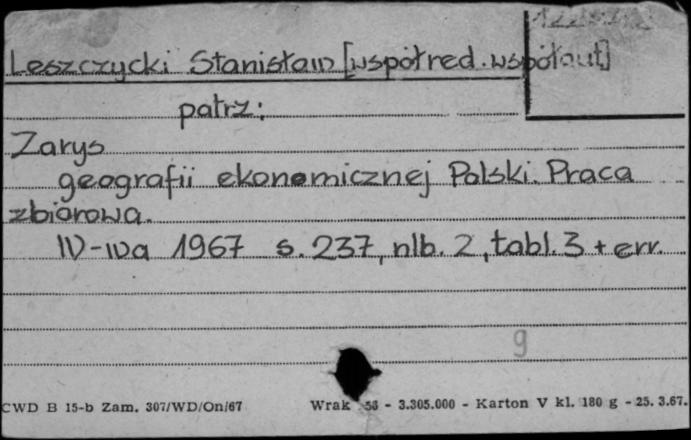 Leszczycki Stanisław [współred. współaut]
patrz:
Zarys
geografii ekonomicznej Polski. Praca
zbiorowa.
W-wa 1967 s. 237, nlb. 2, tabl. 3 + err.
9
CWD B 15-b Zam. 307/WD/On/67 Wrak 58 - 3.305.000 - Karton V kl. 180 g - 25. 3.67.